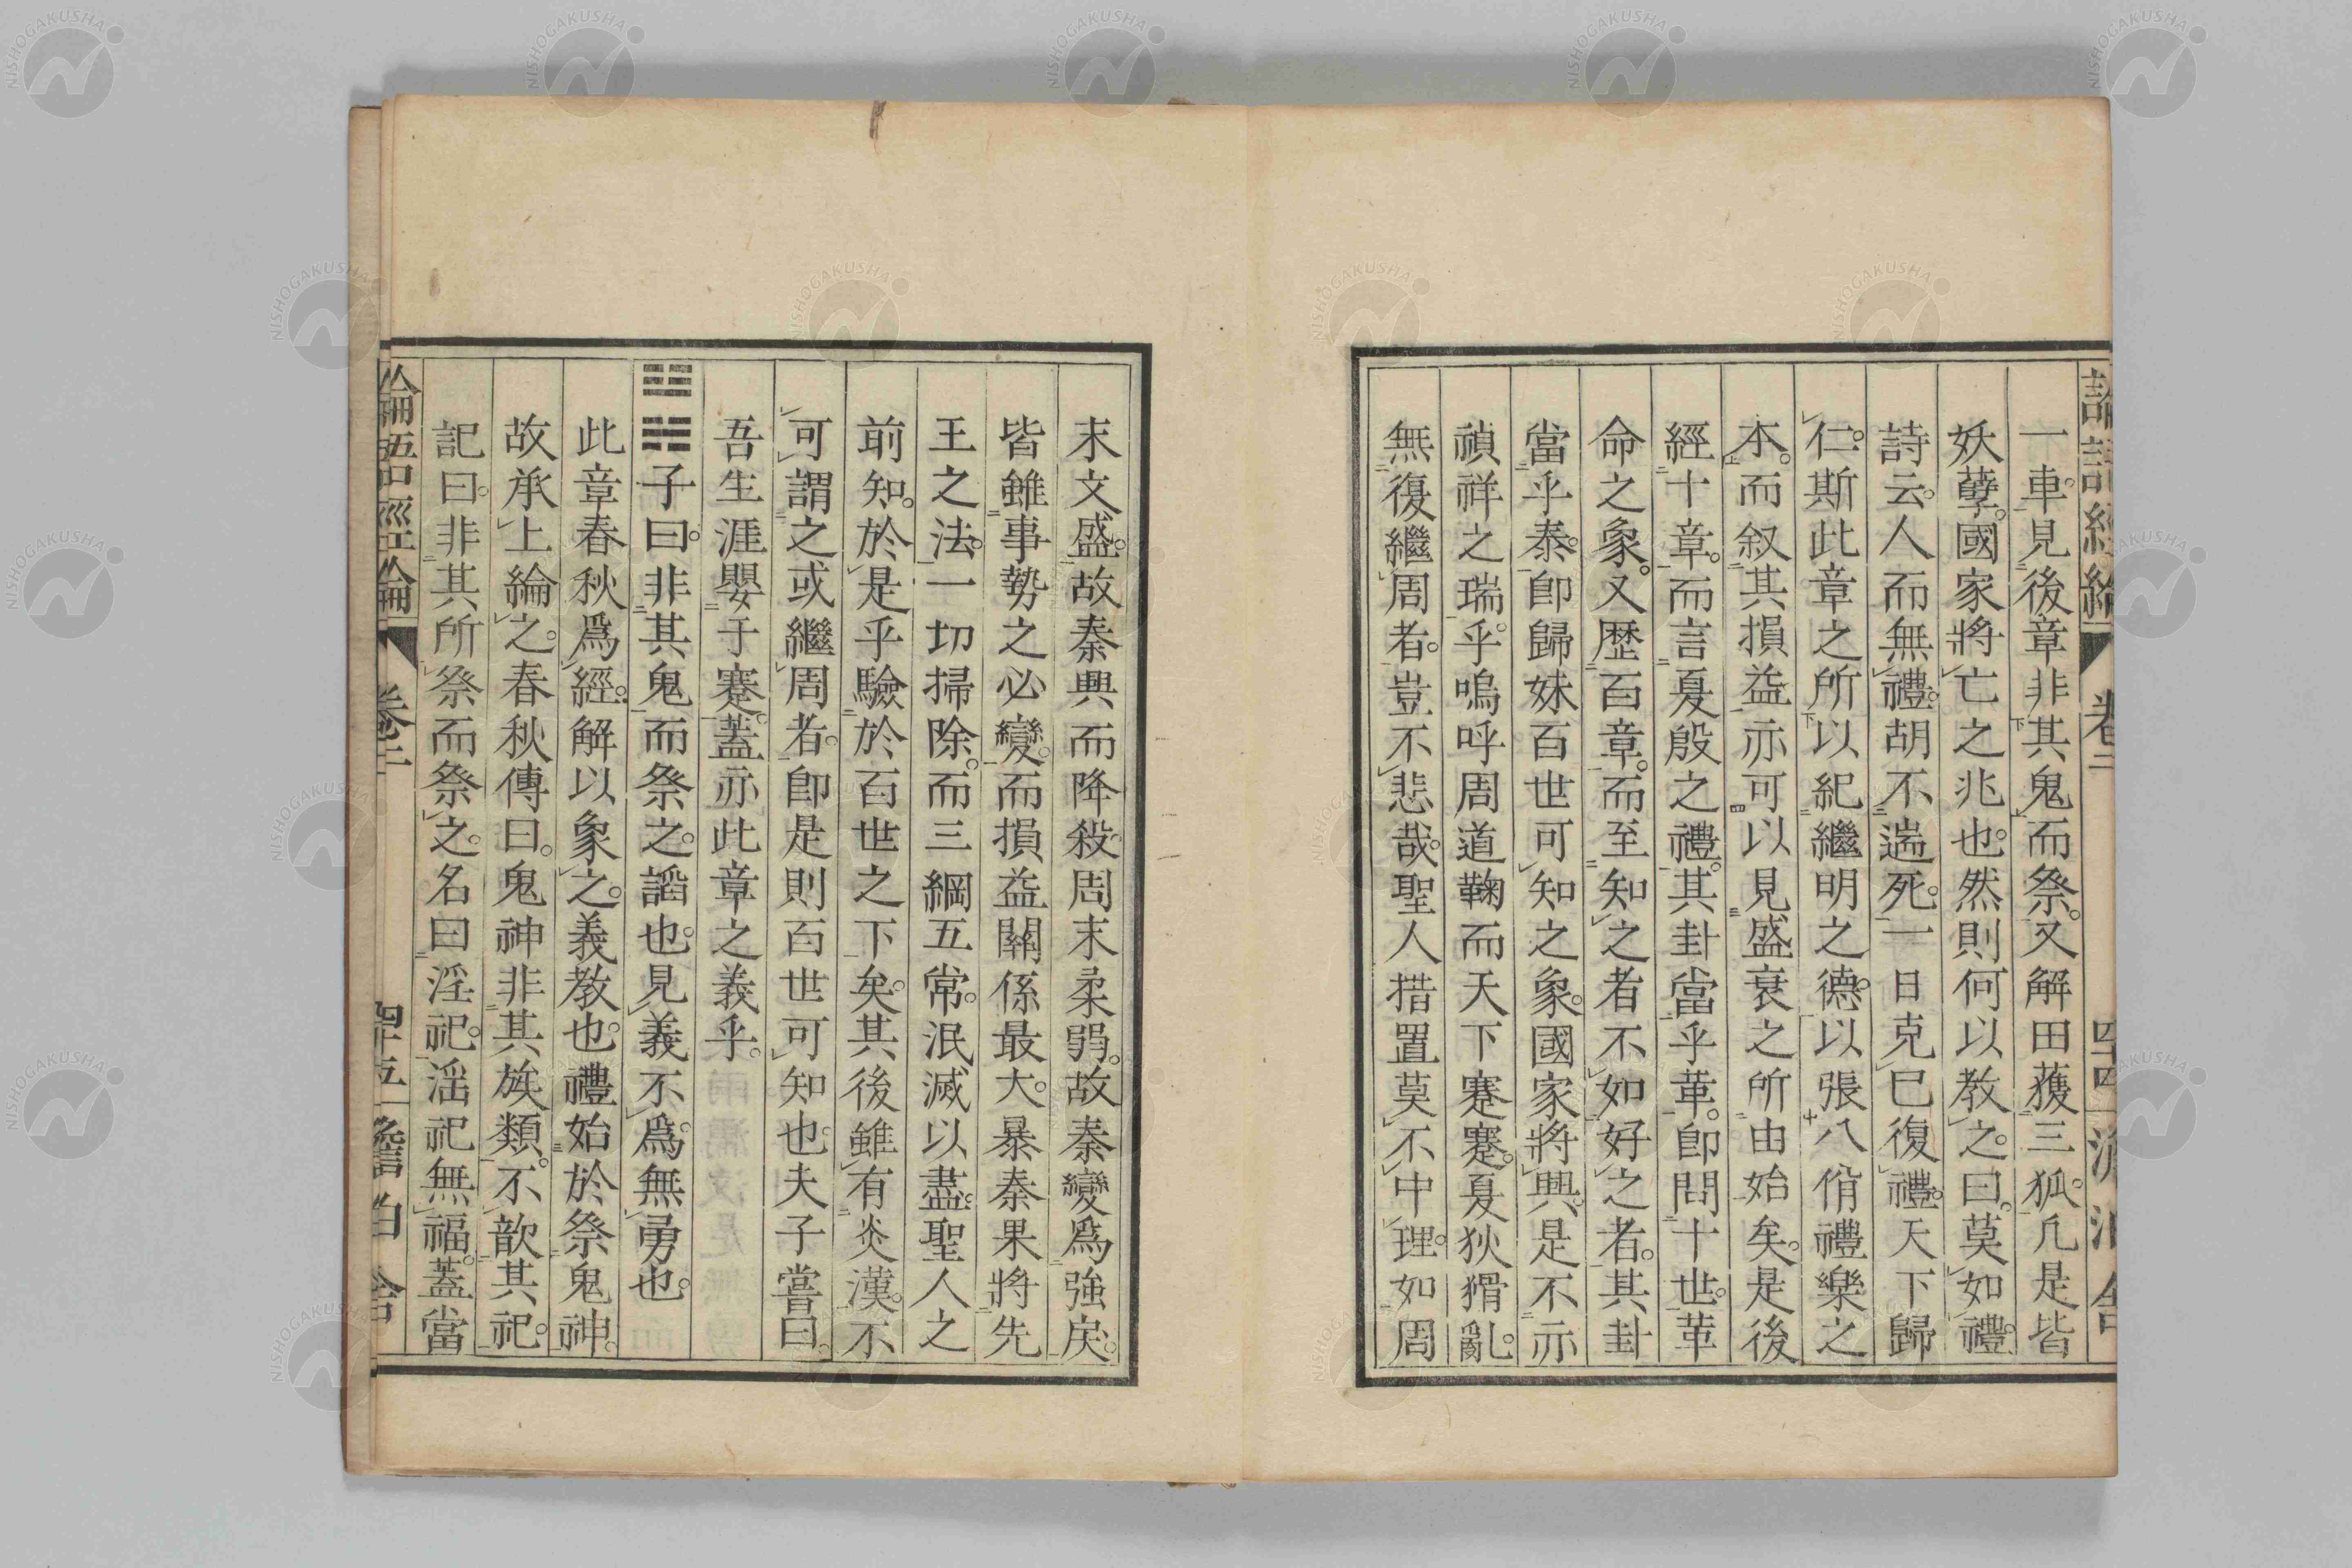 一車。見後章非其鬼而祭。又解田獲三狐。凡是皆
妖孽。國家將亡之兆也。然則何以教之。曰。莫如禮。
詩云。人而無禮。胡不遄死。一日克已復禮。天下歸
仁。斯此章之所以紀繼明之德。以張八佾禮樂之
本。而叙其損益亦可以見盛衰之所由始矣。是後
經十章。而言夏殷之禮。其卦當乎革。卽問十世。革
命之象。又歴百章。而至知之者不如好之者。其卦
當乎泰。卽歸妹百世可知之象。國家將興。是不亦
禎祥之瑞乎。嗚呼周道鞠而天下蹇蹇。夏狄猾亂。
無復繼周者。豈不悲哉。聖人措置莫不中理。如周
末文盛。故秦興而降殺。周末柔弱。故秦變爲強戾。
皆雖事勢之必變。而損益關係最大。暴秦果將先
王之法。一切掃除。而三綱五常。泯滅以盡。聖人之
前知。於是乎驗於百世之下矣。其後雖有炎漢。不
可謂之或繼周者。卽是則百世可知也。夫子嘗曰。
吾生涯嬰于蹇。蓋亦此章之義乎。
䷁子曰。非其鬼而祭之。諂也。見義不爲。無勇也。
此章春秋爲經。解以象之。義教也。禮始於祭鬼神。
故承上綸之。春秋傳曰。鬼神非其族類。不歆其祀。
記曰。非其所祭而祭之。名曰淫祀。淫祀無福。蓋當
論語經綸 卷二 四十五